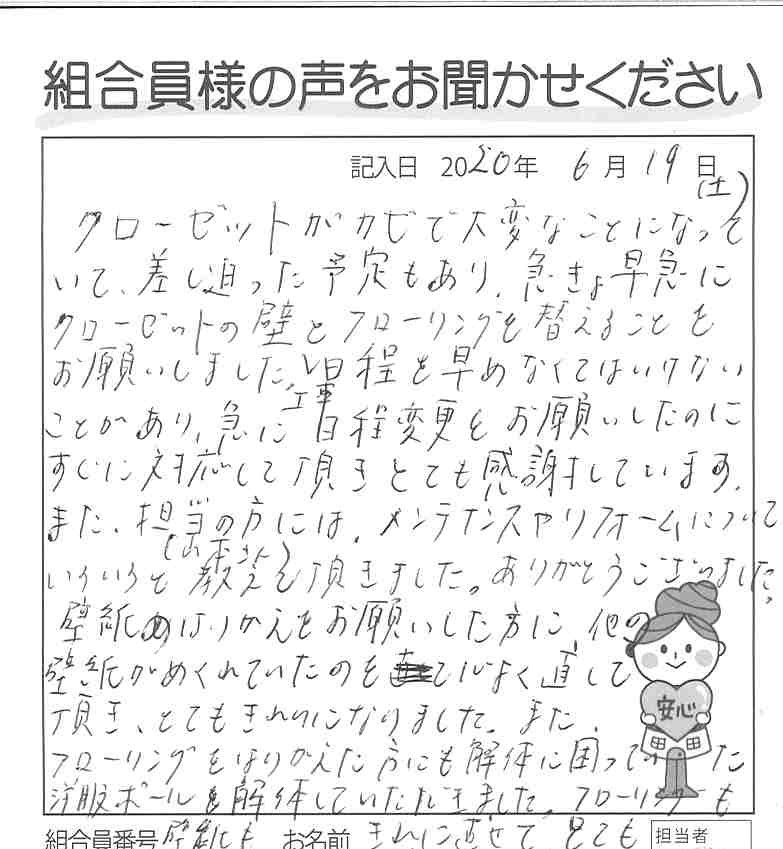 組合員様の声をお聞かせください
記入日 2020年 6月19日
(土)
クローゼットがカビで大変なことになって
いて、差し迫った予定もあり、急きょ早急に
クローゼットの壁とフローリングを替えることを
お願いしました。日程を早めなくてはいけない
ことがあり、急に工事日程変更をお願いしたのに
すぐに対応して頂きとても感謝しています。
また、担当の方には、メンテナンスやリフォームについて
(山本さん)
いろいろと教えて頂きました。ありがとうございました。
壁紙のはりかえをお願いした方に、他の
壁紙がめくれていたのを手ばよく直して
頂き、とてもきれいになりました。また、
フローリングをはりかえた方にも解体に困っていた
洋服ポールも解体していただきました。フローリングも
組合員番号 壁紙も お名前 きれいに直せて、とても
担当者
安心